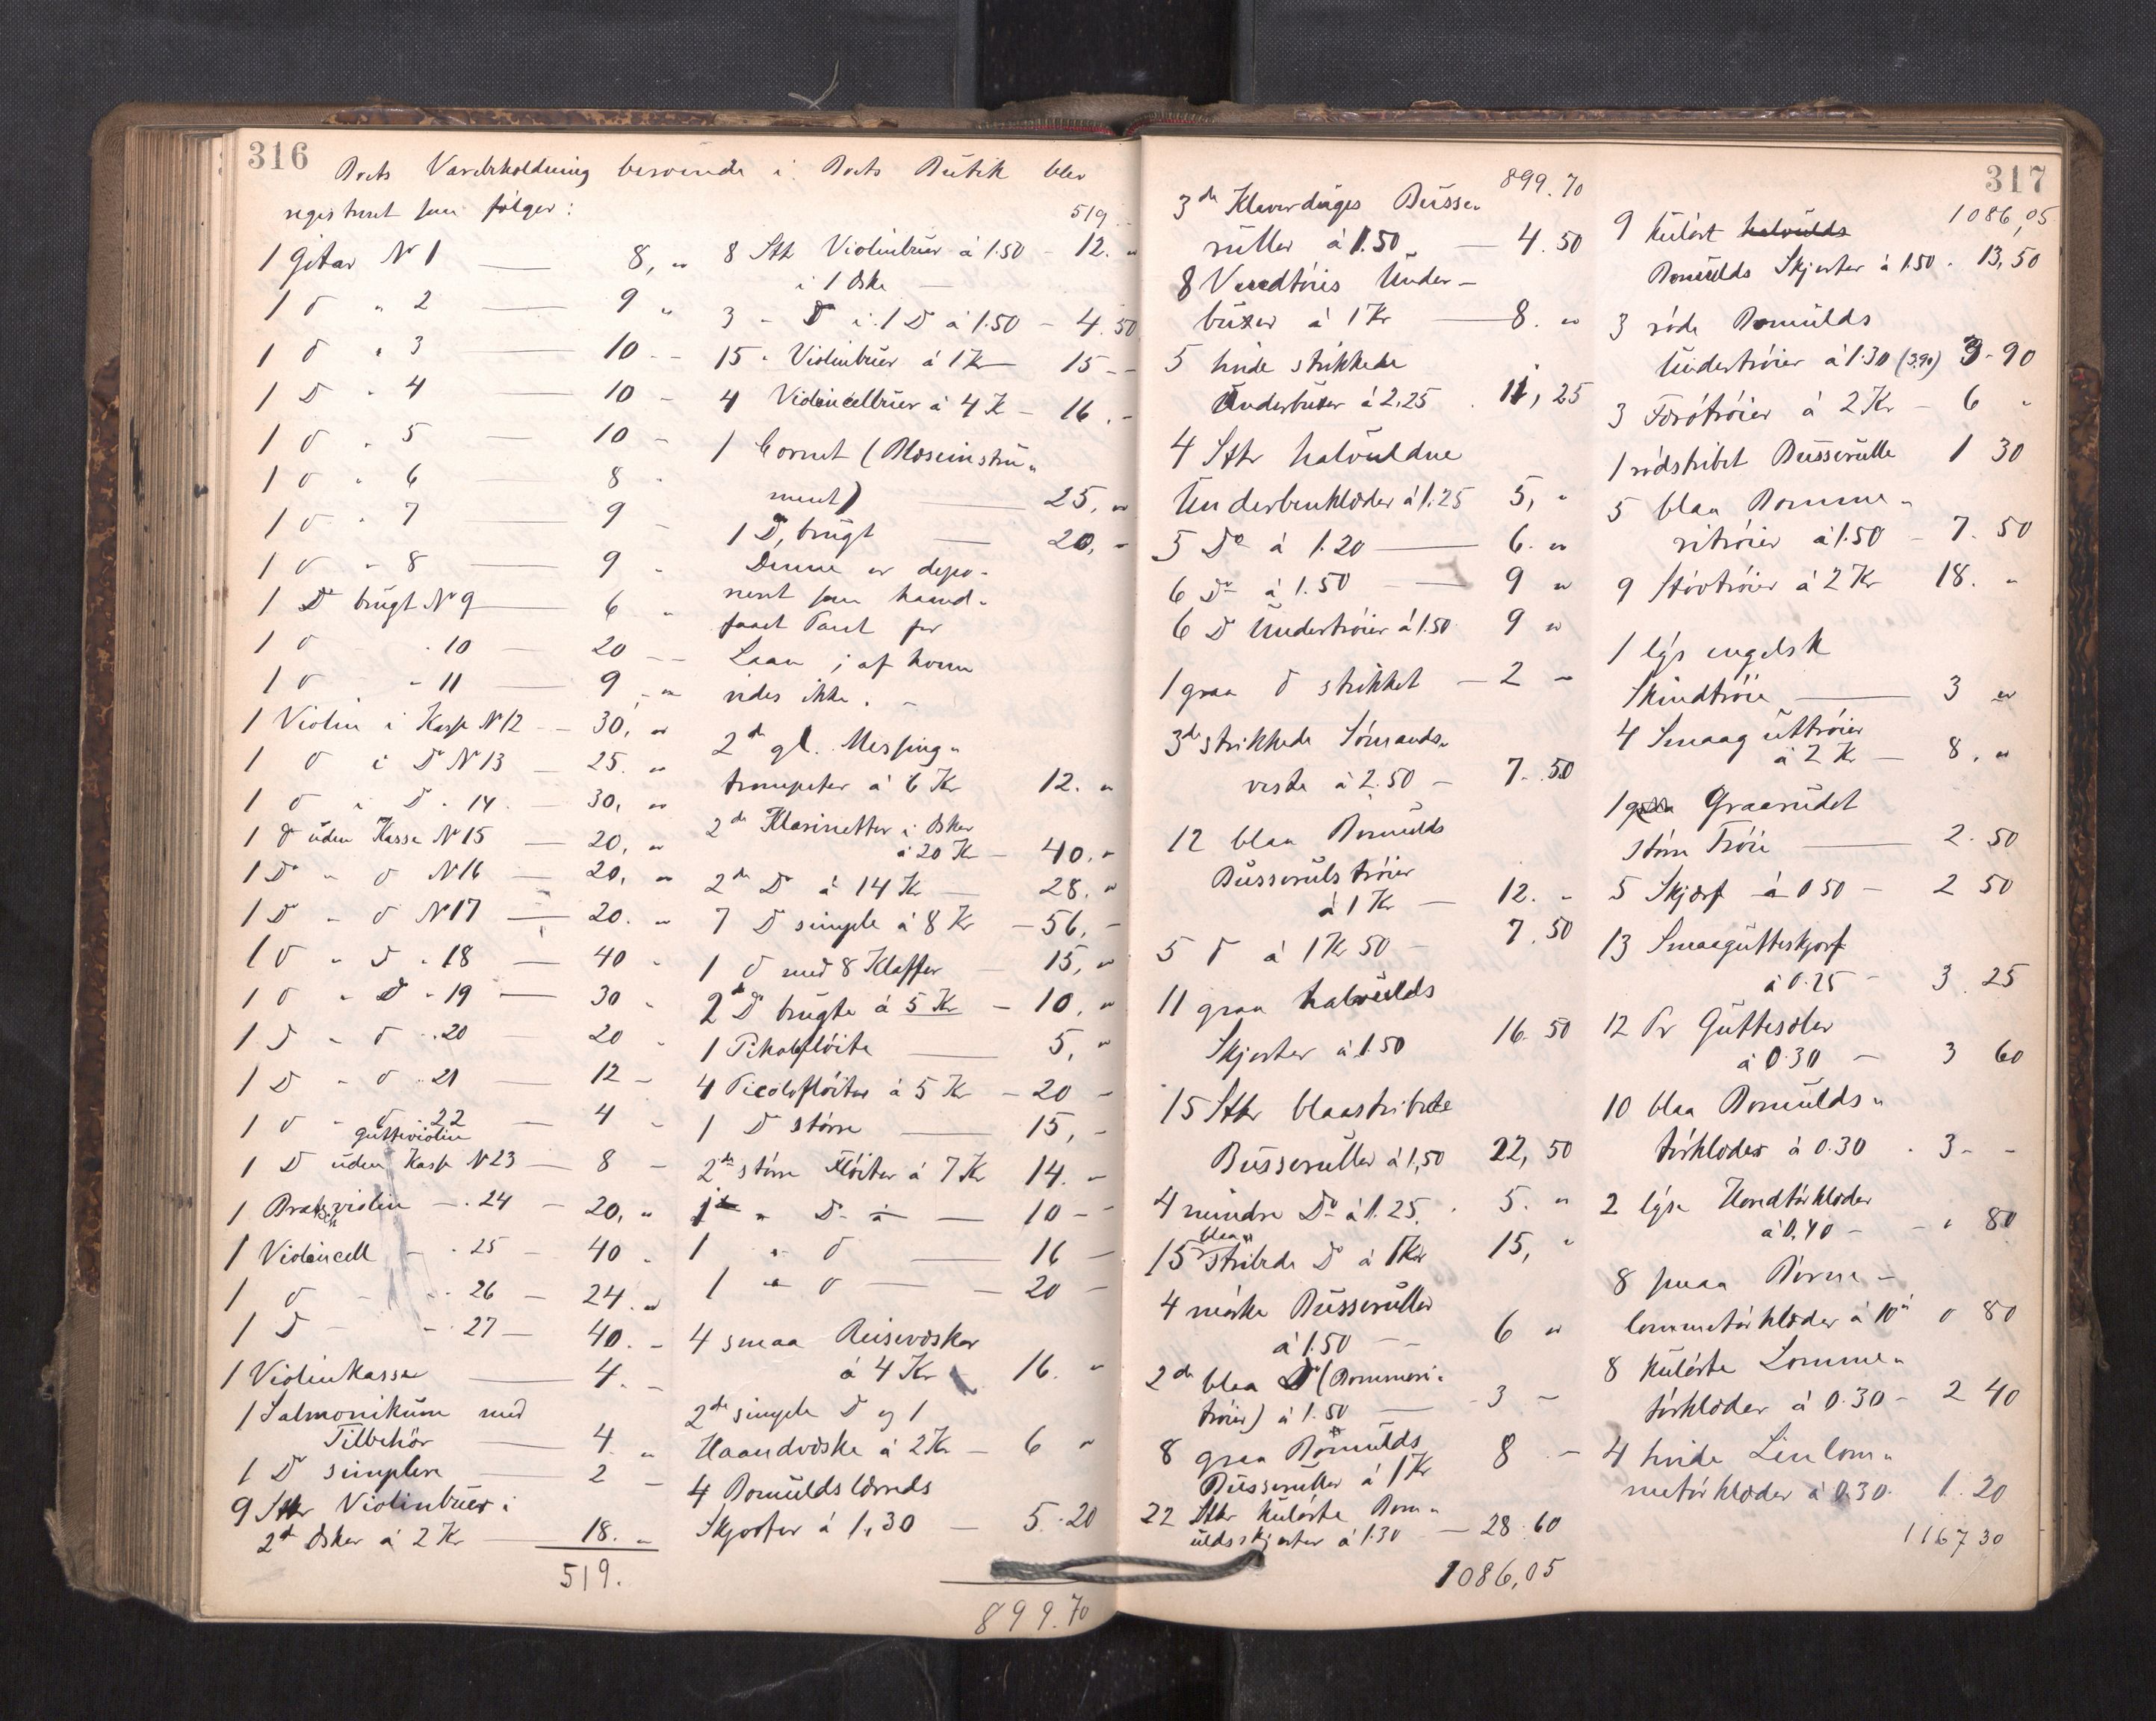 316
Boets Varebeholdning beroende i Boets Butik blev
registreret som følger:
1 Gitar N 1 — 8, "
1 D " 2 — 9 "
1 D " 3 — 10 - -
1 D " 4 — 10 -
1 D " 5 — 10 -
1 D " 6 — 8 -
1 D " 7 — 9 -
1 D " 8 — 9 "
1 D brugt N 9 — 6 "
1 D " 10 — 20 - -
1 D " 11 — 9 - "
1 Violin i Kasse N 12 — 30, "
1 D i D N 13 — 25. "
1 D i D " 14 — 30, "
1 D uden Kasse N 15 — 20, "
1 D " D N 16 — 20, "
1 D " D N 17 — 20. "
1 D " D " 18 — 40 -
1 D " D " 19 — 30 -
1 D " D " 20 — 20 -
1 D " D " 21 — 12 -
1 D " D " 22 — 4 -
Gutteviolin
1 D uden Kasse N 23 — 8 -
1 Bratschviolin — " 24 — 20, "
1 Violincell — " 25 — 40 "
1 D — " 26 — 24. "
1 D — " 27 — 40. -
1 Violinkasse — 4. -
1 Salmonikum med
Tilbehör — 4. "
1 D simplere — 2 -
9 Stkr Violinbuer i
2de Esker à 2 Kr — 18. "
519.
519
8 Stk Violinbuer à 1.50 - 12. "
i 1 Eske —
3 - D i 1 D à 1.50 - 4.50
15 " Violinbuer à 1 Kr — 15 - -
4 Violincellbuer à 4 K - 16. -
1 Cornet (Blæseinstru-
ment) — 25. "
1 D, brugt — 20, -
Denne er depo-
neret som haand-
faaet Pant for
Laan; af hvem
vides ikke. -
2de gl. Messing-
trompeter à 6 Kr 12. "
2de Klarinetter i Esker
à 20 Kr — 40. "
2de D à 14 Kr — 28. "
7 D simple à 8 Kr — 56, -
1 D med 8 Klaffer — 15, "
2de D brugte à 5 Kr — 10, "
1 Pikoloflöite — 5, "
4 Picoloflöiter à 5 Kr — 20 -
1 D större — 15, -
2de större Flöiter à 7 Kr 14. -
1 " D — 10 - -
1 " D — 16 -
1 " D — 20 -
4 smaa Reisevæsker
à 4 Kr 16. "
2de simple D og 1
Haandvæske à 2 Kr — 6 "
4 Bomuldslærreds
Skjorter à 1,30 — 5.20
899.70
317
899.70
3de Kleverduges Busse-
ruller à 1.50 — 4.50
8 Verdtöies Under-
buxer à 1 Kr — 8. "
5 hvide strikkede
Underbuxer à 2,25 . 11,25
4 Stkr halvuldne
Underbenklæder à 1.25 5, "
5 Do à 1.20 — 6. "
6 Do à 1.50 — 9 "
6 D Undertröier à 1.50 9 "
1 graa D strikket — 2 -
3de strikkede Sömands-
veste à 2.50 — 7.50
12 blaa Bomulds
Busserulströier
à 1 Kr — 12. -
5 D à 1 Kr 50 — 7.50
11 graa halvulds
Skjorter à 1.50 16.50
15 Stkr blaastribede
Busseruller à 1,50 22,50
4 mindre Do à 1.25 . 5. "
15 blaastribede D à 1 Kr 15, "
4 mörke Busseruller
à 1.50 — 6 "
2de blaa D (Bommeri-
tröier) à 1.50 — 3 -
8 graa Bomulds
Busseruller à 1 Kr 8 -
22 Stkr kulörte Bom-
uldsskjorter à 1.30 — 28.60
1086,05
1086,05
9 kulört halvulds
Bomulds Skjorter à 1.50 . 13,50
3 röde Bomulds
Undertröier à 1.30 (3.90) 3.90
3 Færötröier à 2 Kr — 6 "
1 rödstribet Busserulle 1 30
5 blaa Bomme-
ritröier à 1.50 — 7.50
9 Störtröier à 2 Kr 18. "
1 lys engelsk
Skindtröie — 3 "
4 Smaaguttröier
à 2 Kr — 8. "
1 graa Graarudet
större Tröie — 2.50
5 Skjærf à 0 50 — 2 50
13 Smaagutteskjærf
à 0.25 — 3.25
12 Pr Guttesæler
à 0.30 — 3 60
10 blaa Bomulds-
törklæder à 0.30 . 3 - -
2 lyse Hovedtörklæder
à 0,40 — " 80
8 smaa Börne-
lommetörklæder à 10 ö 0 80
8 kulörte Lomme-
törklæder à 0.30 — 2 40
4 hvide Linlom-
metörklæder à 0.30. 1.20
1167 30